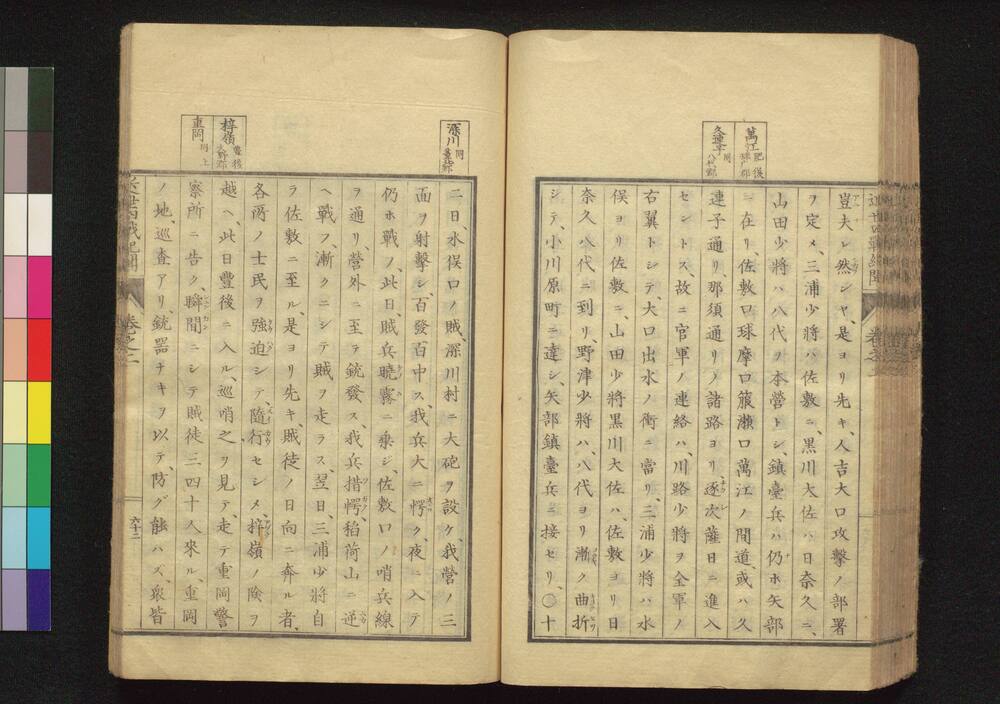 萬江 肥後球广郡
久連子 同八代郡
豈夫レ然シヤ、是ヨリ先キ、人吉大口攻擊ノ部署
ヲ定メ、三浦少將ハ佐敷ニ、黒川大佐ハ日奈久ニ、
山田少將ハ八代ヲ本營トシ、鎮臺兵ハ仍ホ矢部
ニ在リ、佐敷口球摩口箙瀬口萬江ノ間道、或ハ久
連子通リ、那須通リノ諸路ヨリ、逐次薩日ニ進入
セントス、故ニ官軍ノ連絡ハ、川路少將ヲ全軍ノ
右翼トシテ、大口出水ノ衝ニ當リ、三浦少將ハ水
俣ヨリ佐敷ニ、山田少將黒川大佐ハ、佐敷ヨリ日
奈久八代ニ到リ、野津少將ハ、八代ヨリ漸ク曲折
シテ、小川原町ニ達シ、矢部鎮臺兵ニ接セリ、〇十
深川 同
梓嶺 豊後大野郡
重岡 同上
二日、水俣口ノ賊、深川村ニ大砲ヲ設ケ、我營ノ三
面ヲ射擊シ、百發百中ス、我兵大ニ愕ク、夜ニ入テ
仍ホ戰ノ、此日、賊兵曉霧ニ乗シ、佐敷口ノ哨兵線
ヲ通リ、營外ニ至テ銃發ス、我兵措愕、稻荷山ニ逆
ヘ戰フ、漸クニシテ賊ヲ走ラス、翌日、三浦少將自
ラ佐敷ニ至ル、是ヨリ先キ、賊徒ノ日向ニ奔ル者、
各所ノ士民ヲ強迫シテ、隨行セシメ、梓嶺ノ険ヲ
越ヘ、此日豐後ニ入ル、巡哨之ヲ見テ、走テ重岡警
察所ニ告ク、瞬間ニシテ賊徒三四十人來ル、重岡
ノ地、巡査アリ、銃器ナキヲ以テ防グ能ハズ、衆皆
卷之二
六十二